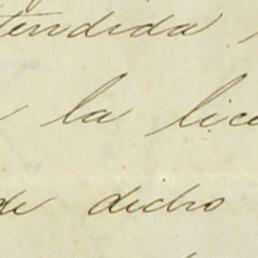 tendida
la lice
de dicho